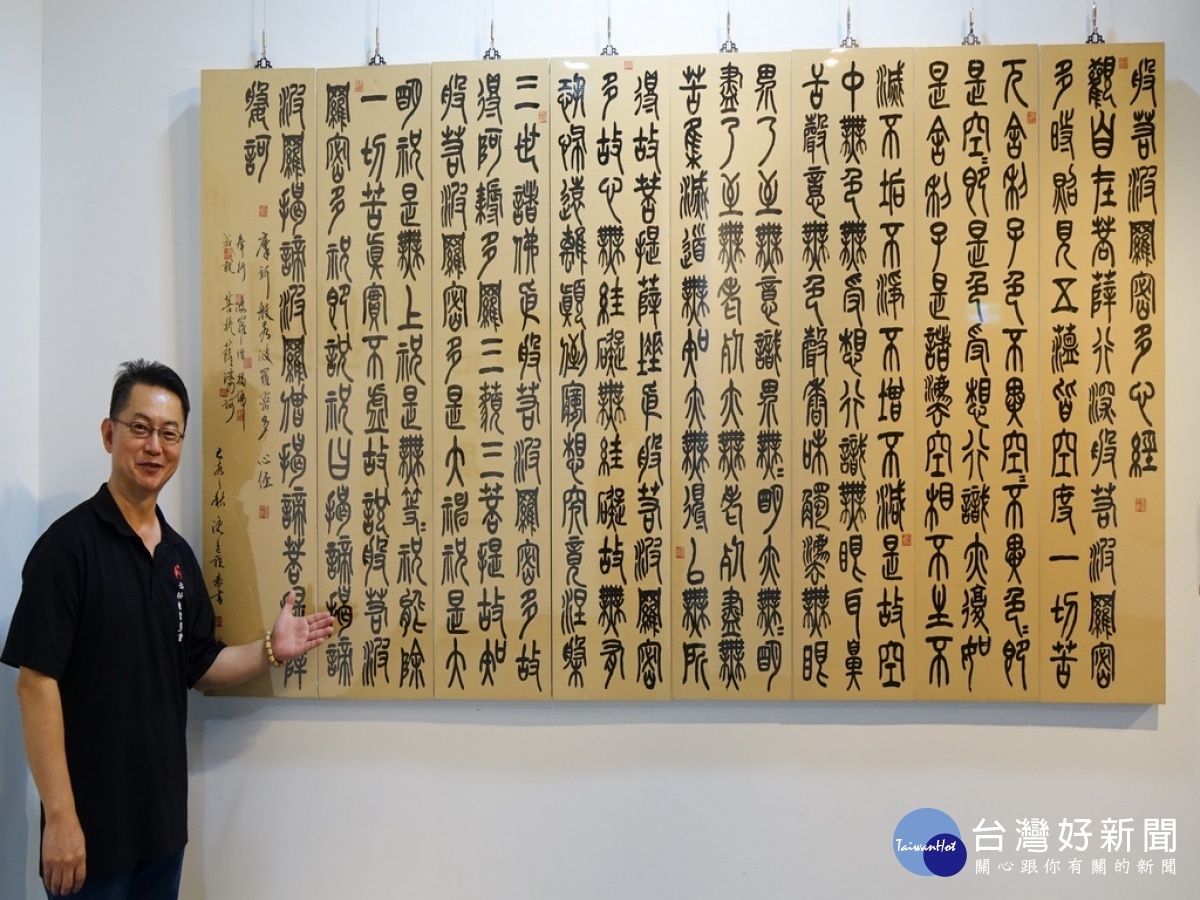 般若波羅密多心經
觀自在菩薩行深般若波羅密
多時照見五蘊皆空度一切苦
厄舍利子色不異空〻不異色〻即
是空〻即是色受想行識亦復如
是舍利子是諸法空相不生不
滅不垢不淨不增不減是故空
中無色無受想行識無眼耳鼻
舌聲意無色聲香味觸法無眼
界乃至無意識界無〻明亦無〻明
盡乃至無老死亦無老死盡無
苦集滅道無知亦無得以無所
得故菩提薩埵依般若波羅密
多故心無罣礙無罣礙故無有
恐怖遠離顛倒夢想究竟涅槃
三世諸佛依般若波羅密多故
得阿耨多羅三藐三菩提故知
般若波羅密多是大神祝是大
明祝是無上祝是無等〻祝能除
一切苦真實不虛故說般若波
羅密多祝即說祝曰揭諦揭諦
波羅揭諦波羅僧揭諦菩提薩
婆訶
摩訶般若波羅密多心經
TaiwanHot
台灣好新聞
關心跟你有關的新聞